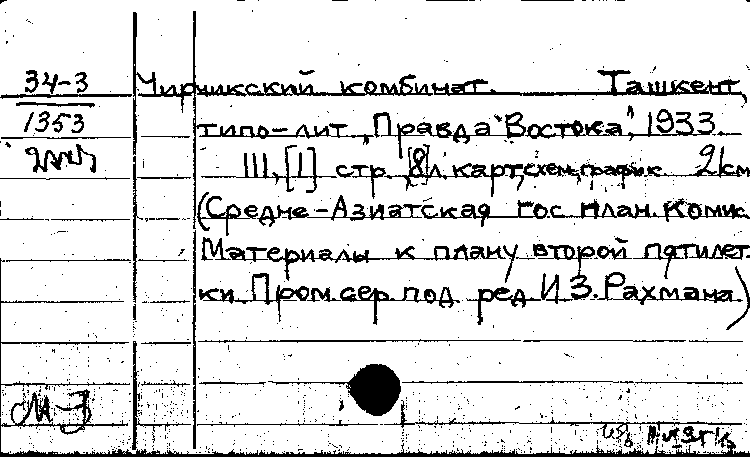 34-3 Чирчикский комбинат. Ташкент,
1353 типо-лит. „Правда Востока", 1933.
III, [1] стр., [8]л. карт, схем, график. 21см
(Средне-Азиатская гос. план. комис.
Материалы к плану второй пятилет-
ки. Пром. сер. под. ред. И.З. Рахмана.)
М-З